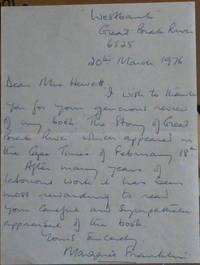 Westbank
Great Brak River
6525
20th March 1976
Dear Mrs Hewett
I wish to thank
you for your generous review
of my book The Story of Great
Brak River which appeared in
the Cape Times of February 18th
After many years of
labourous work it has been
most rewarding to read
your careful and sympathetic
appraisal of the book
Yours Sincerely
Margaret Franklin